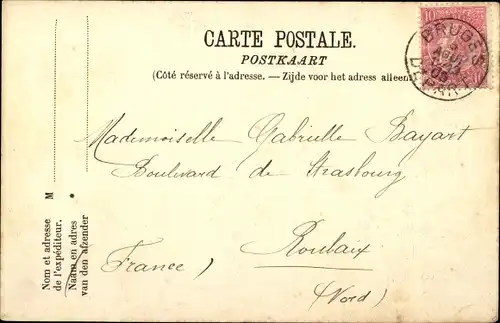 CARTE POSTALE.
POSTKAART
(Côté réservé à l'adresse. — Zijde voor het adress alleen
10
BRUGES
AOUT
DEPART
Mademoiselle Gabrielle Bayart
Boulevard de Strasbourg
Roubaix
France)
(Nord)
M
*
Nom et adresse
de l'expéditeur.
Naam en adres
van den afzender